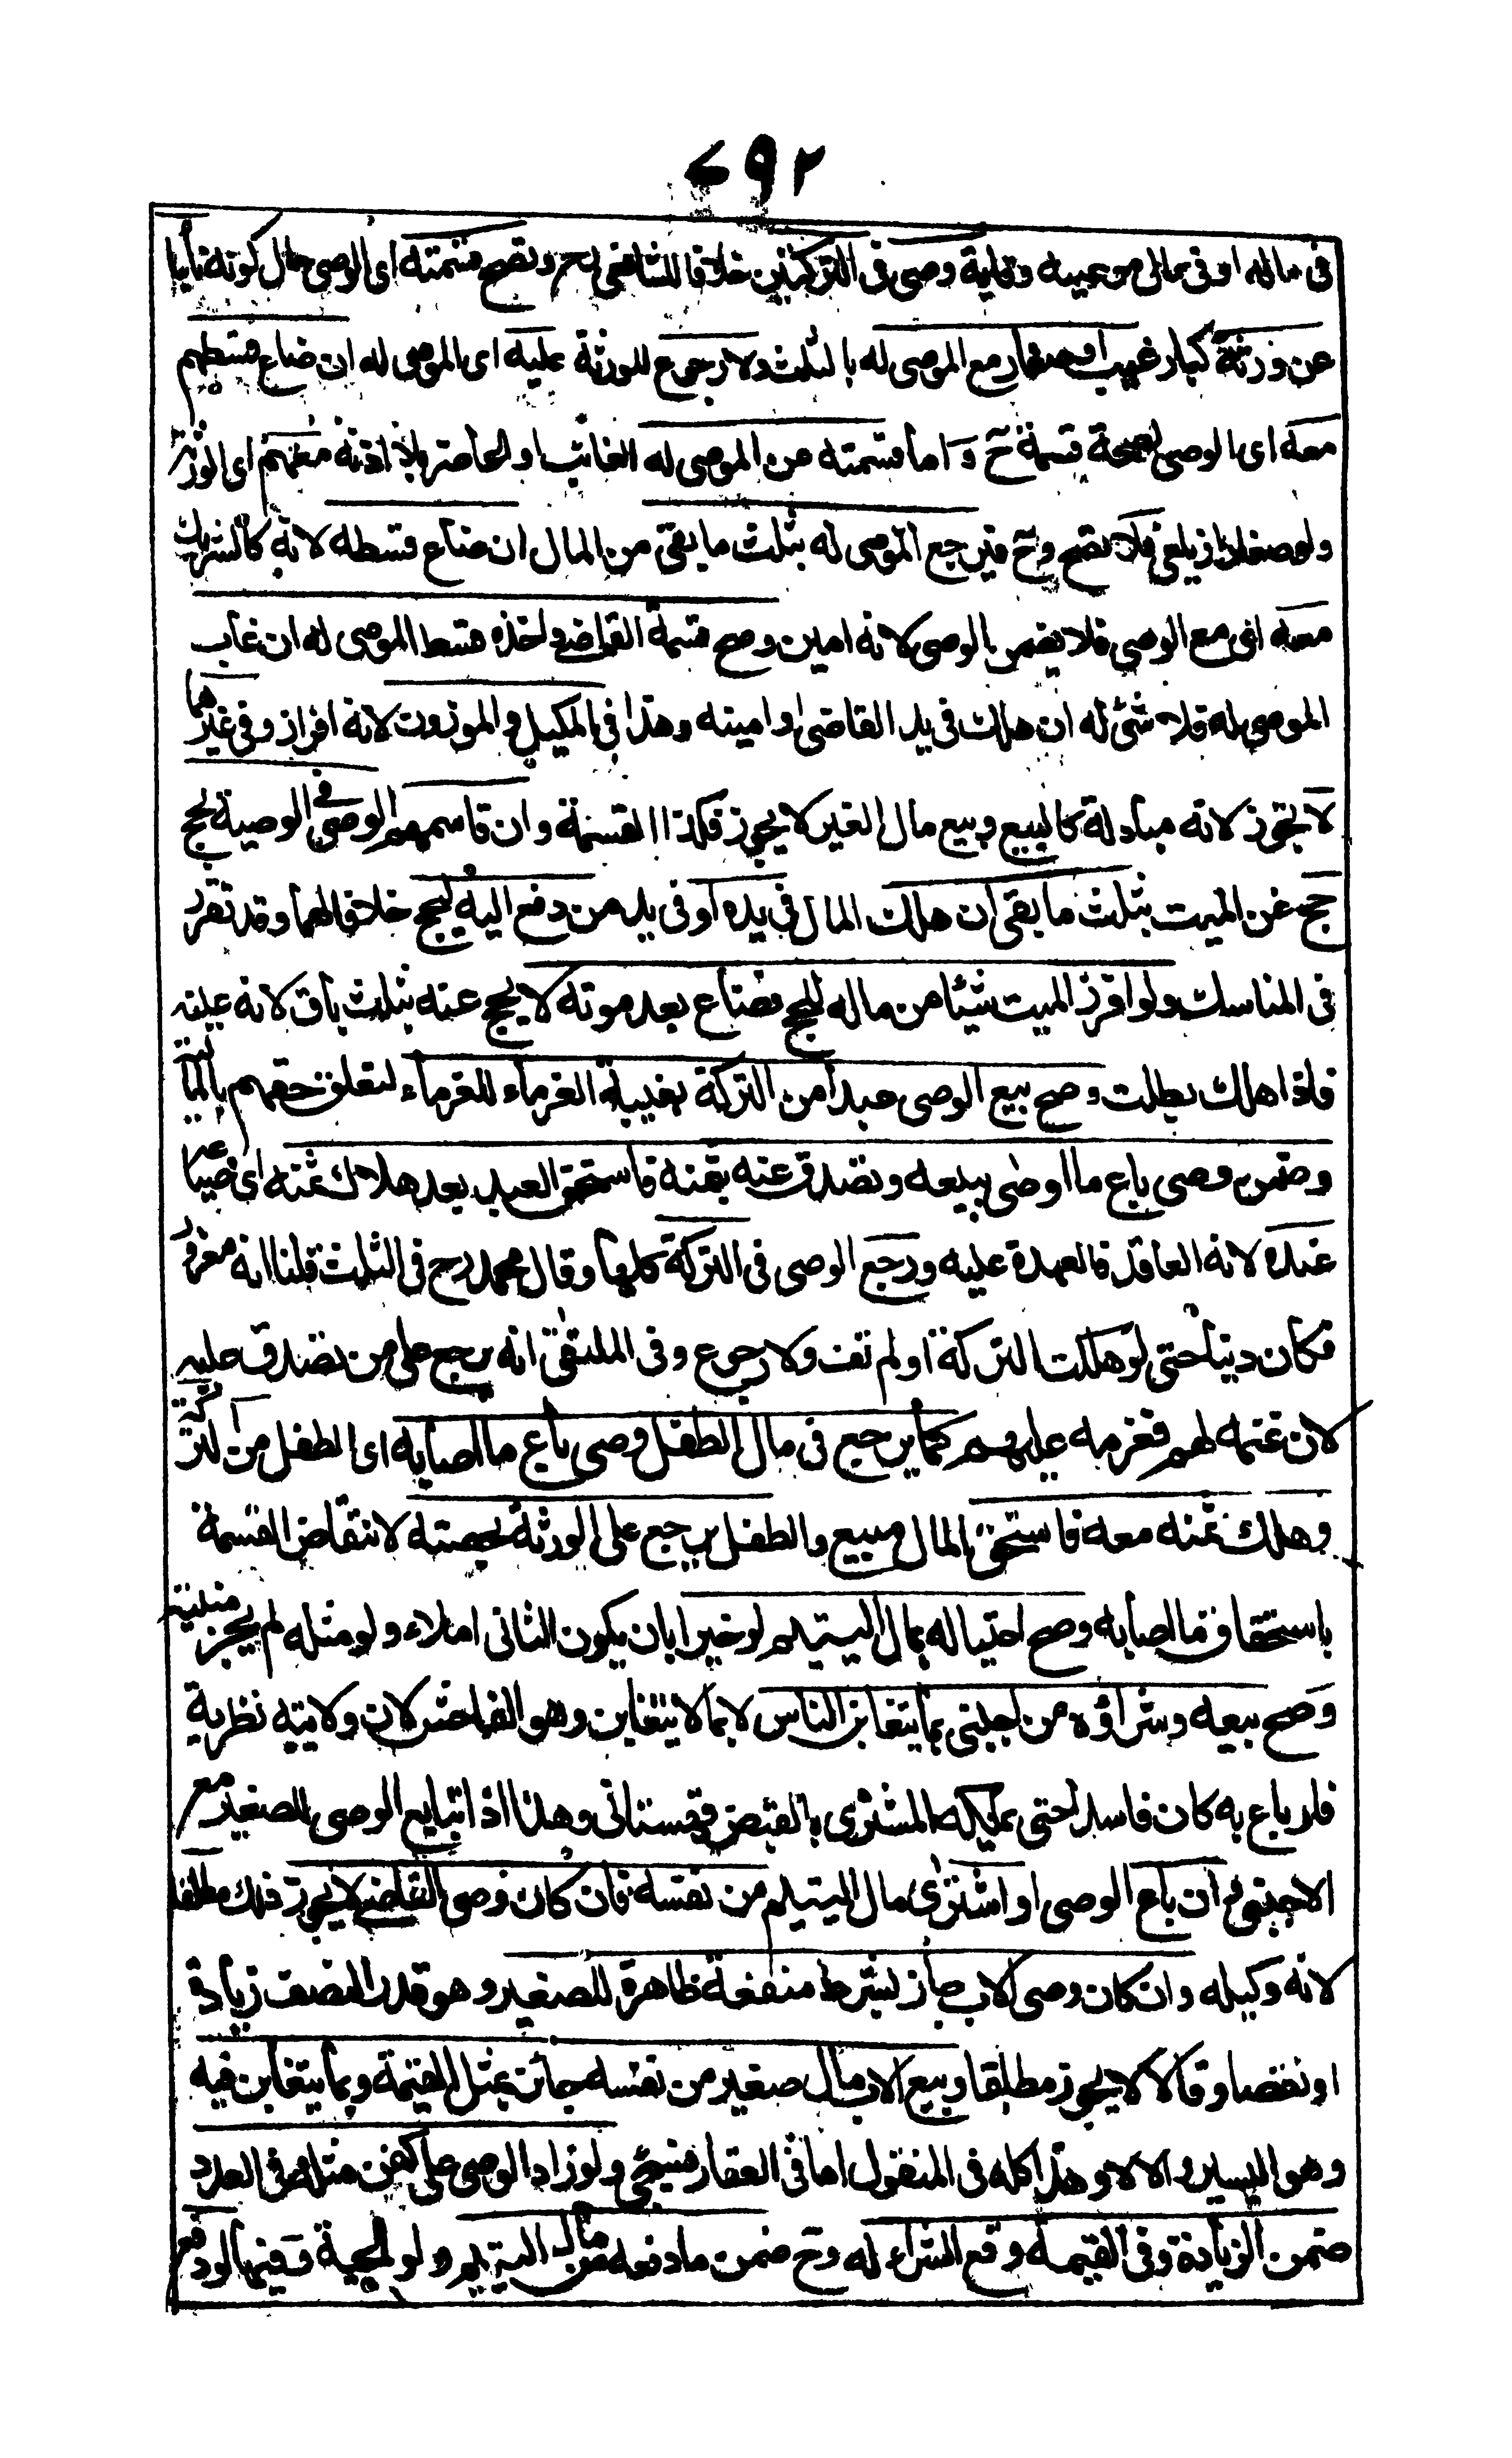 ٦٩٢
فى ماله او فى مالى موصيه وقاية وصى فى التركتين خلافا للشافعى رح وتصح قسمته اى الوصى حال كونه نائبا
عن ورثة كبار غيب او صغار مع الموصى له بالثلث ولا رجوع للورثة عليه اى الموصى له ان ضاع قسطهم
معه اى الوصى لصحة قسمته ح و اما قسمته عن الموصى له الغائب او الحاضر بلا اذنه معهم اى الورثة
ولو صغارا زيلعى فلا تصح وح فيرجع الموصى له بثلث ما بقى من المال ان ضاع قسطه لانه كالشريك
معه اى مع الوصى فلا يضمن الوصى لانه امين وصح قسمة القاضى واخذه قسط الموصى له ان غاب
الموصى له فلا شئ له ان هلك فى يد القاضى او امينه وهذا فى المكيل والموزون لانه افراز وفى غيرهما
لا تجوز لانه مبادلة كالبيع وبيع مال الغير لا يجوز فكذا القسمة وان قاسمهم الوصى فى الوصية بحج
حج عن الميت بثلث ما بقى ان هلك المال فى يده او فى يد من دفع اليه ليحج خلافا لهما وقد تقرر
فى المناسك ولو افرز الميت شيئا من ماله للحج فضاع بعد موته لا يحج عنه بثلث باق لانه عينه
فاذا هلك بطلت وصح بيع الوصى عبدا من التركة بغيبة الغرماء للغرماء لتعلق حقهم بالمالية
وضمن وصى باع ما اوصى ببيعه وتصدق عنه بثمنه فاستحق العبد بعد هلاك ثمنه اى ضياعه
عنده لانه العاقد فالعهدة عليه ورجع الوصى فى التركة كلها وقال محمد رح فى الثلث قلنا انه مغرور
فكان دينا حتى لو هلكت التركة او لم تف ولا رجوع وفى الملتقى انه يرجع على من تصدق عليه
لان غنمه لهم فغرمه عليهم كما يرجع فى مال الطفل وصى باع ما اصابه اى الطفل من التركة
وهلك ثمنه معه فاستحق المال مبيع والطفل يرجع على الورثة بحصته لانتقاض القسمة
باستحقاق ما اصابه وصح احتياله بمال اليتيم لو خيرا بان يكون الثانى املاء ولو مثله لم يجز منية
وصح بيعه وشراؤه من اجنبى بما يتغابن الناس لا بما لا يتغابن وهو الفاحش لان ولايته نظرية
فلو باع به كان فاسدا حتى يملكه المشترى بالقبض قهستانى وهذا اذا تبايع الوصى للصغير مع
الاجنبى و ان باع الوصى او اشترى مال اليتيم من نفسه فان كان وصى القاضى لا يجوز ذلك مطلقا
لانه وكيله وان كان وصى الاب جاز بشرط منفعة ظاهرة للصغير وهو قدر النصف زيادة
او نقصا وقالا لا يجوز مطلقا وبيع الاب مال صغير من نفسه جائز بمثل القيمة وبما يتغابن فيه
وهو اليسير والا لا وهذا كله فى المنقول اما فى العقار فسيجئ ولو زاد الوصى على كفن مثله فى العدد
ضمن الزيادة وفى القيمة وقع الشراء له وح ضمن ما دفعه من مال اليتيم ولوالجية وفيها لو دفع